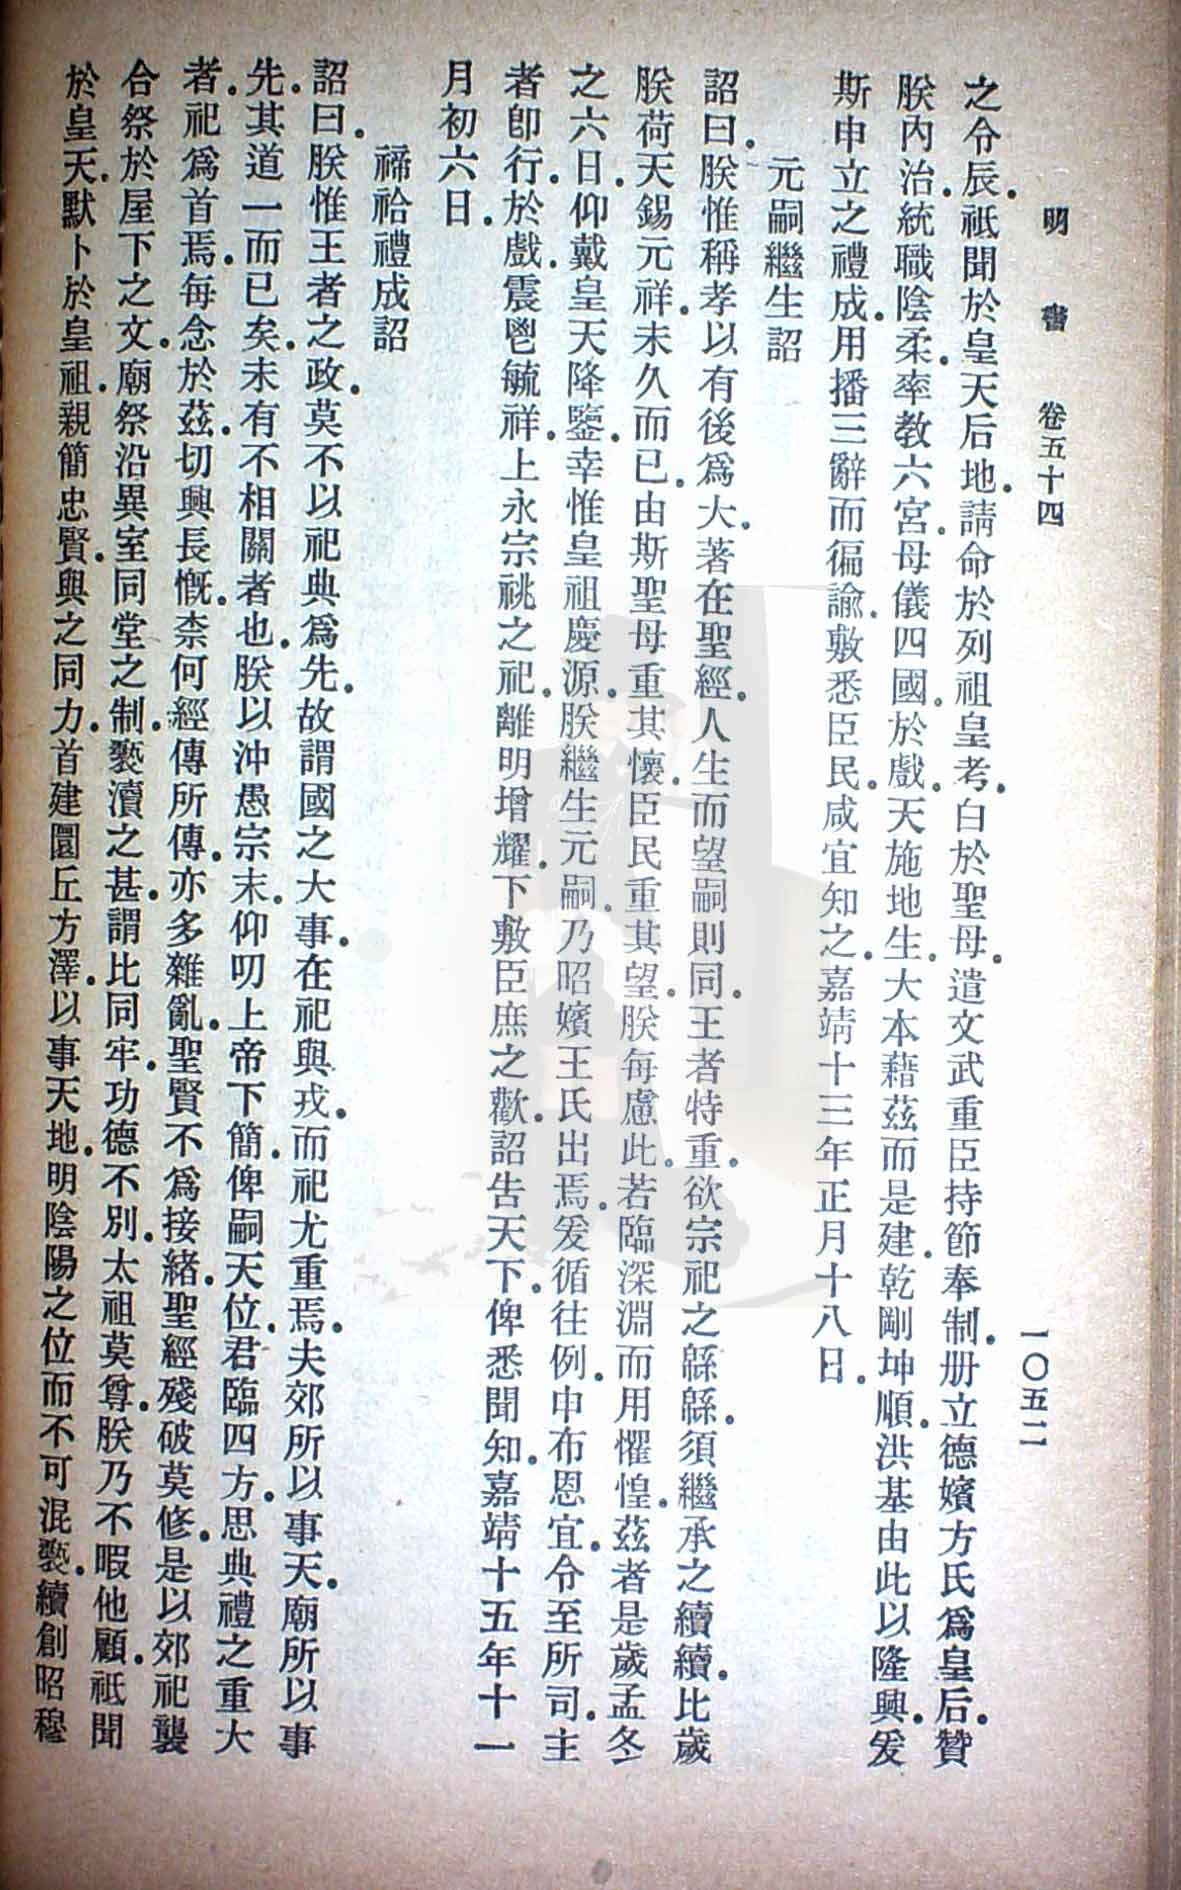 明書 卷五十四 一〇五二
之令辰。祗聞於皇天后地。請命於列祖皇考。白於聖母。遣文武重臣持節奉制。册立德嬪方氏爲皇后。贊
朕內治。統職陰柔。率教六宮。母儀四國。於戲。天施地生。大本藉茲而是建。乾剛坤順。洪基由此以隆興。爰
斯申立之禮成。用播三辭而徧諭。敷悉臣民。咸宜知之。嘉靖十三年正月十八日。
元嗣繼生詔
詔曰。朕惟稱孝以有後爲大。著在聖經。人生而望嗣則同。王者特重。欲宗祀之緜緜。須繼承之續續。比歲
朕荷天錫元祥。未久而已。由斯聖母重其懷。臣民重其望。朕每慮此。若臨深淵而用懼惶。茲者是歲孟冬
之六日。仰戴皇天降鑒。幸惟皇祖慶源。朕繼生元嗣。乃昭嬪王氏出焉。爰循往例。申布恩宜。令至所司。主
者卽行。於戲。震鬯毓祥。上永宗祧之祀。離明增耀。下敷臣庶之歡。詔告天下。俾悉聞知。嘉靖十五年十一
月初六日。
禘祫禮成詔
詔曰。朕惟王者之政。莫不以祀典爲先。故謂國之大事。在祀與戎。而祀尤重焉。夫郊所以事天。廟所以事
先。其道一而已矣。未有不相關者也。朕以沖愚宗末。仰叨上帝下簡。俾嗣天位。君臨四方。思典禮之重大
者。祀爲首焉。每念於茲。切興長慨。柰何經傳所傳。亦多雜亂。聖賢不爲接緒。聖經殘破莫修。是以郊祀襲
合祭於屋下之文。廟祭沿異室同堂之制。褻瀆之甚。謂比同牢。功德不別。太祖莫尊。朕乃不暇他顧。祗聞
於皇天。默卜於皇祖。親簡忠賢。與之同力。首建圜丘方澤。以事天地。明陰陽之位而不可混褻。續創昭穆